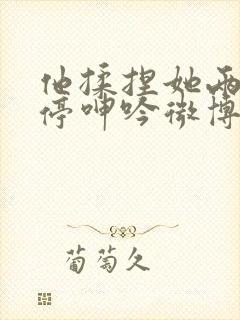 他揉捏她两
停呻吟微博
葡萄久